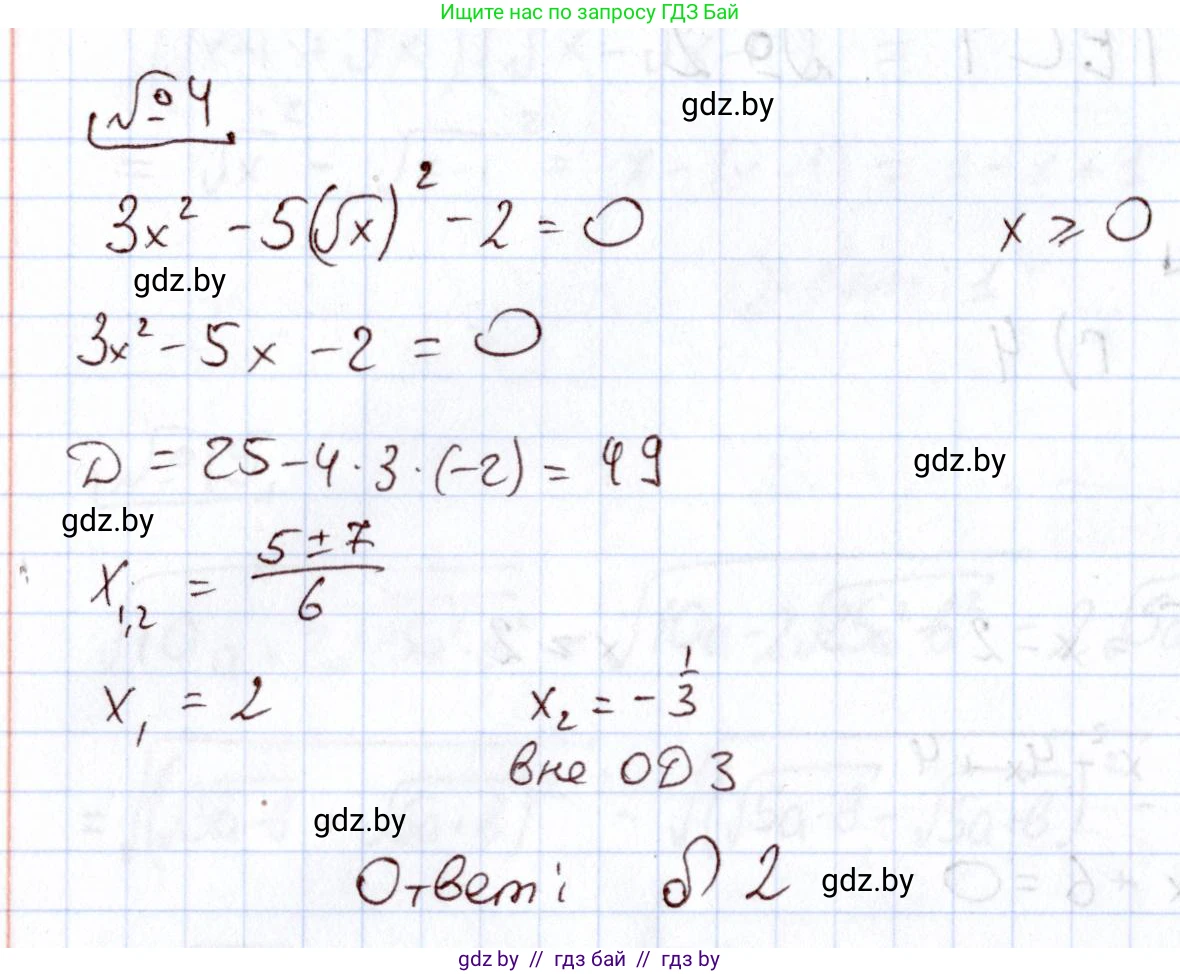 Ищите нас по запросу ГДЗ Бай
№ 4
gdz.by
3x² - 5(√x)² - 2 = 0     x ≥ 0
gdz.by
3x² - 5x - 2 = 0
D = 25 - 4 · 3 · (-2) = 49
gdz.by
gdz.by
x₁,₂ = (5 ± 7)/6
x₁ = 2     x₂ = - 1/3
вне ОДЗ
gdz.by
Ответ: б) 2
gdz.by
gdz.by // гдз бай // гдз by